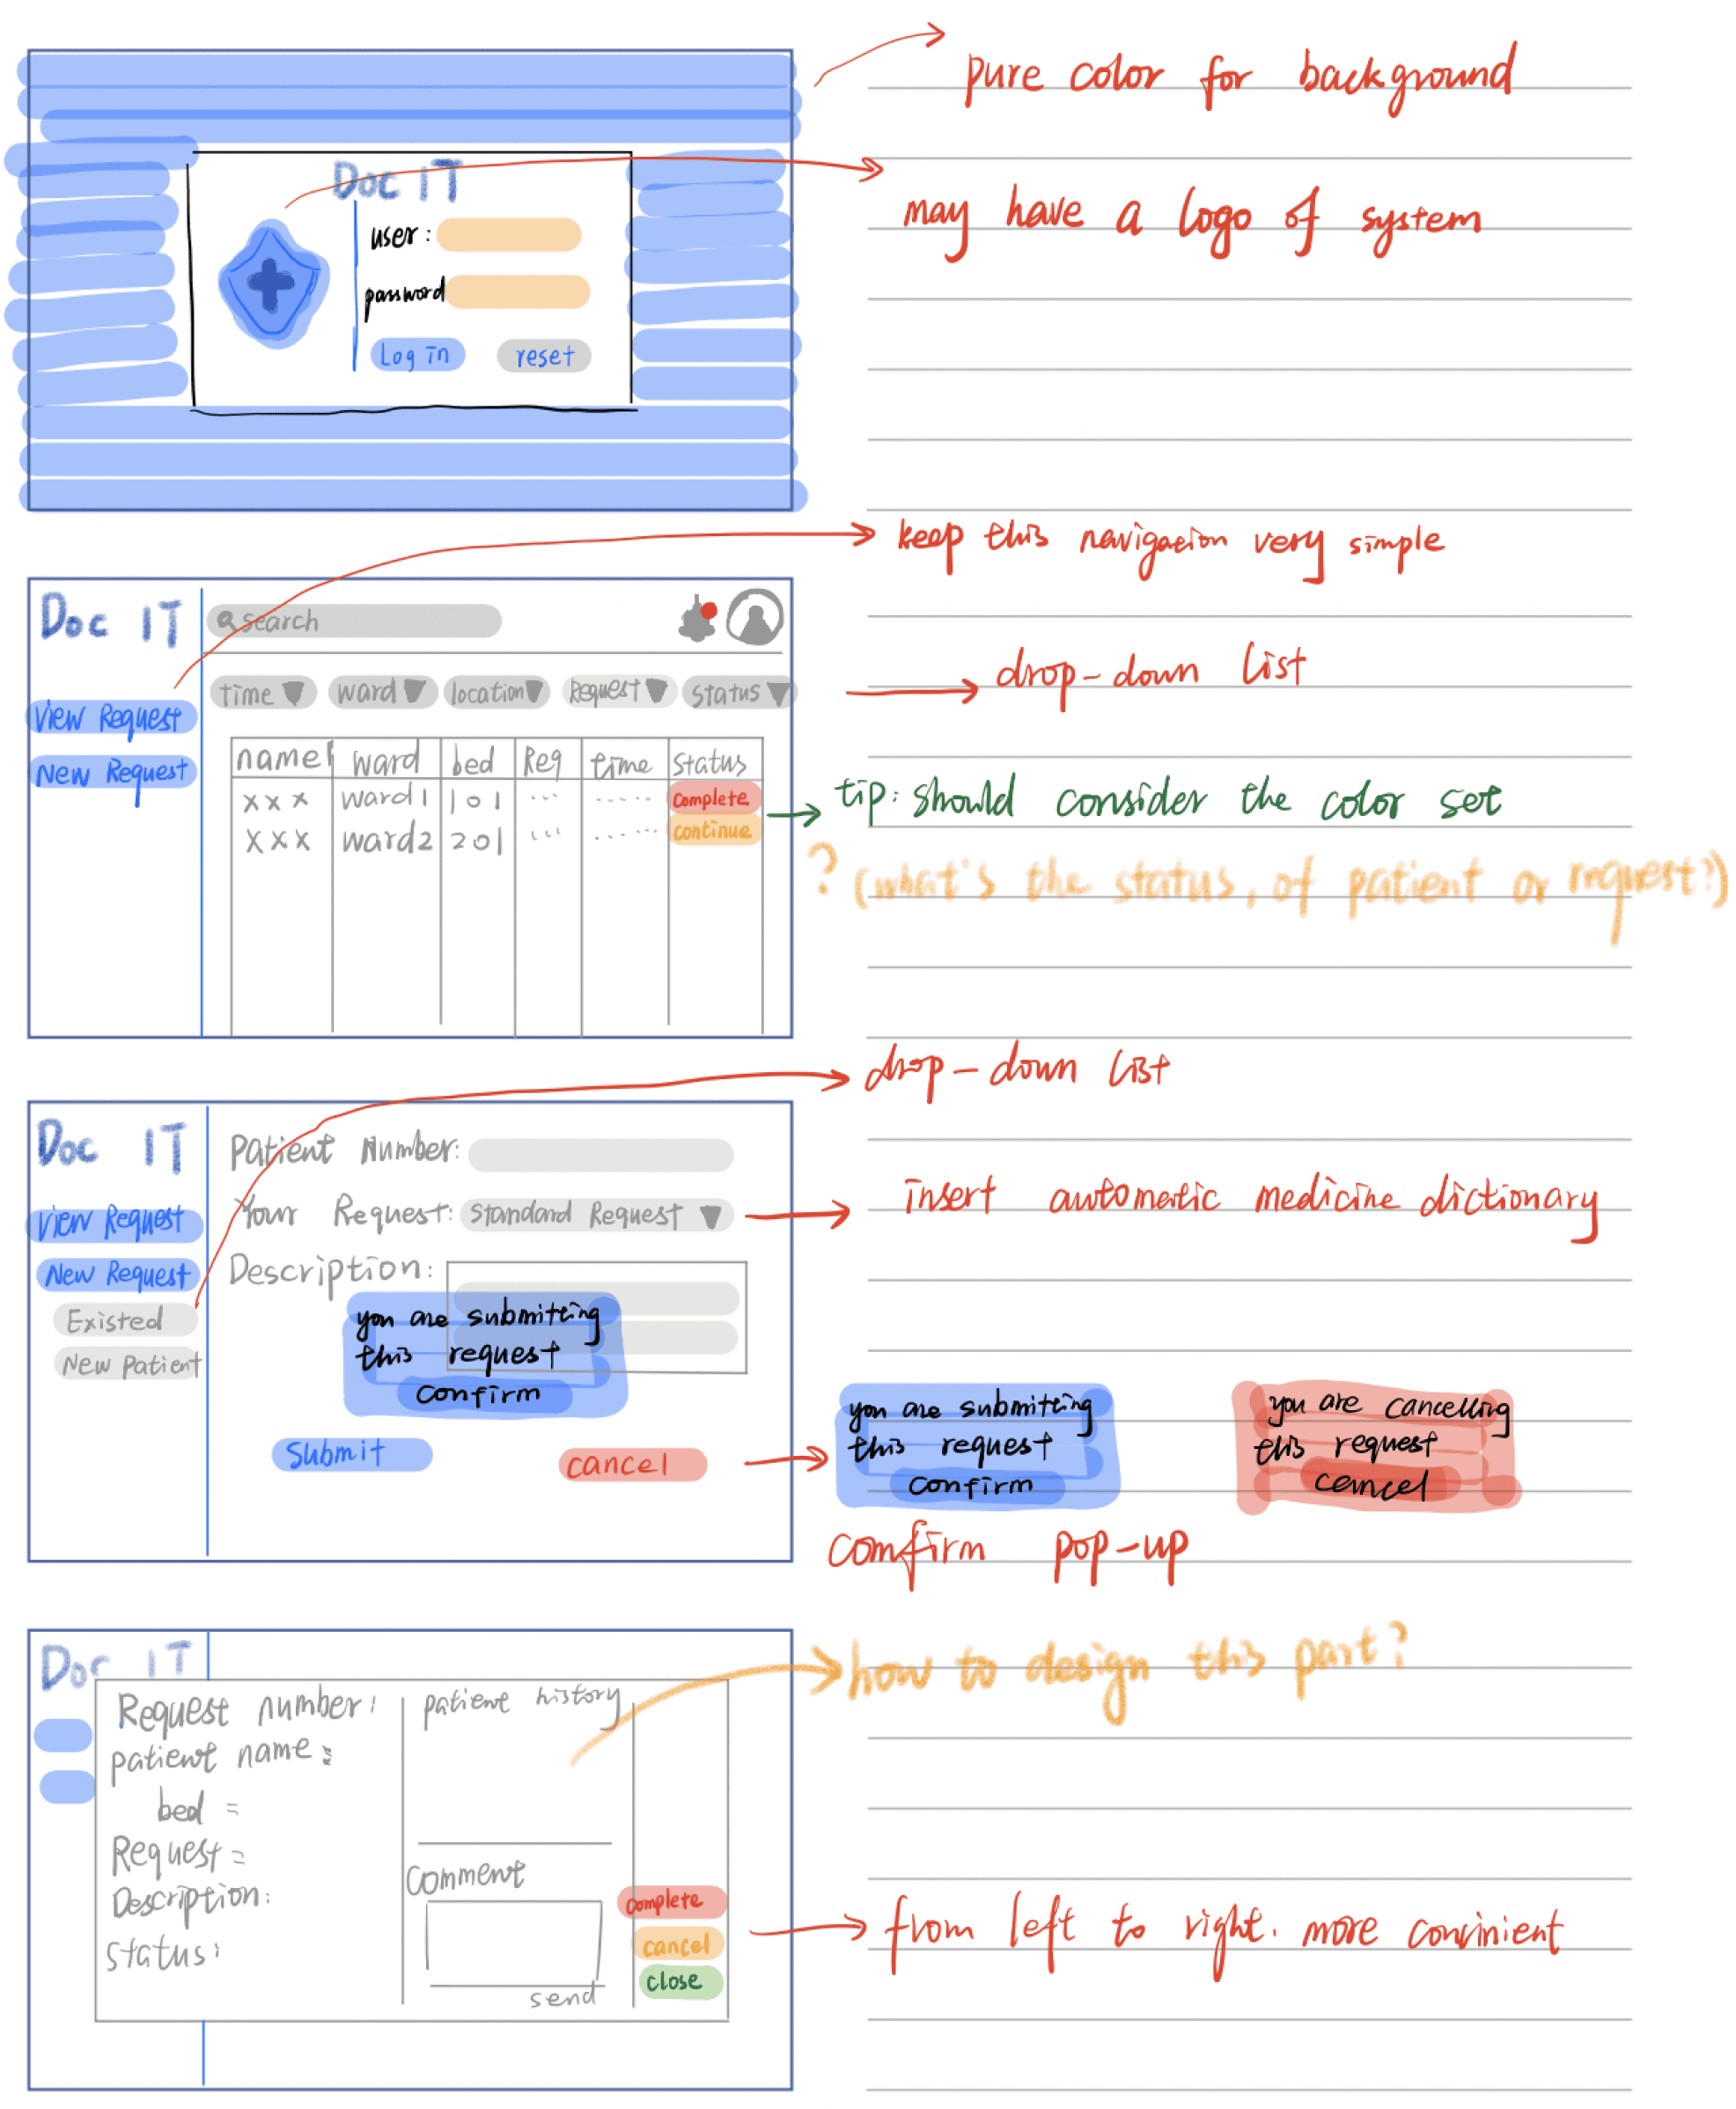 pure color for background
Doc IT
may have a logo of system
user:
password
Log in reset
keep this navigation very simple
Doc IT
search
drop-down list
time ward location Request status
View Request
New Request
name ward bed Req time status
xxx ward1 101 ... ..... complete
xxx ward2 201 ... ..... continue
tip: should consider the color set
? (what's the status, of patient or request?)
drop-down list
Doc IT
Patient Number:
View Request
Your Request: Standard Request
insert automatic medicine dictionary
New Request
Description:
Existed
New Patient
you are submitting
this request
Confirm
Submit
cancel
you are submitting
this request
Confirm
you are cancelling
this request
cancel
comfirm pop-up
Doc IT
how to design this part?
Request number:
patient name:
bed =
Request =
Description:
Status:
patient history
Comment
send
complete
cancel
close
from left to right. more convinient